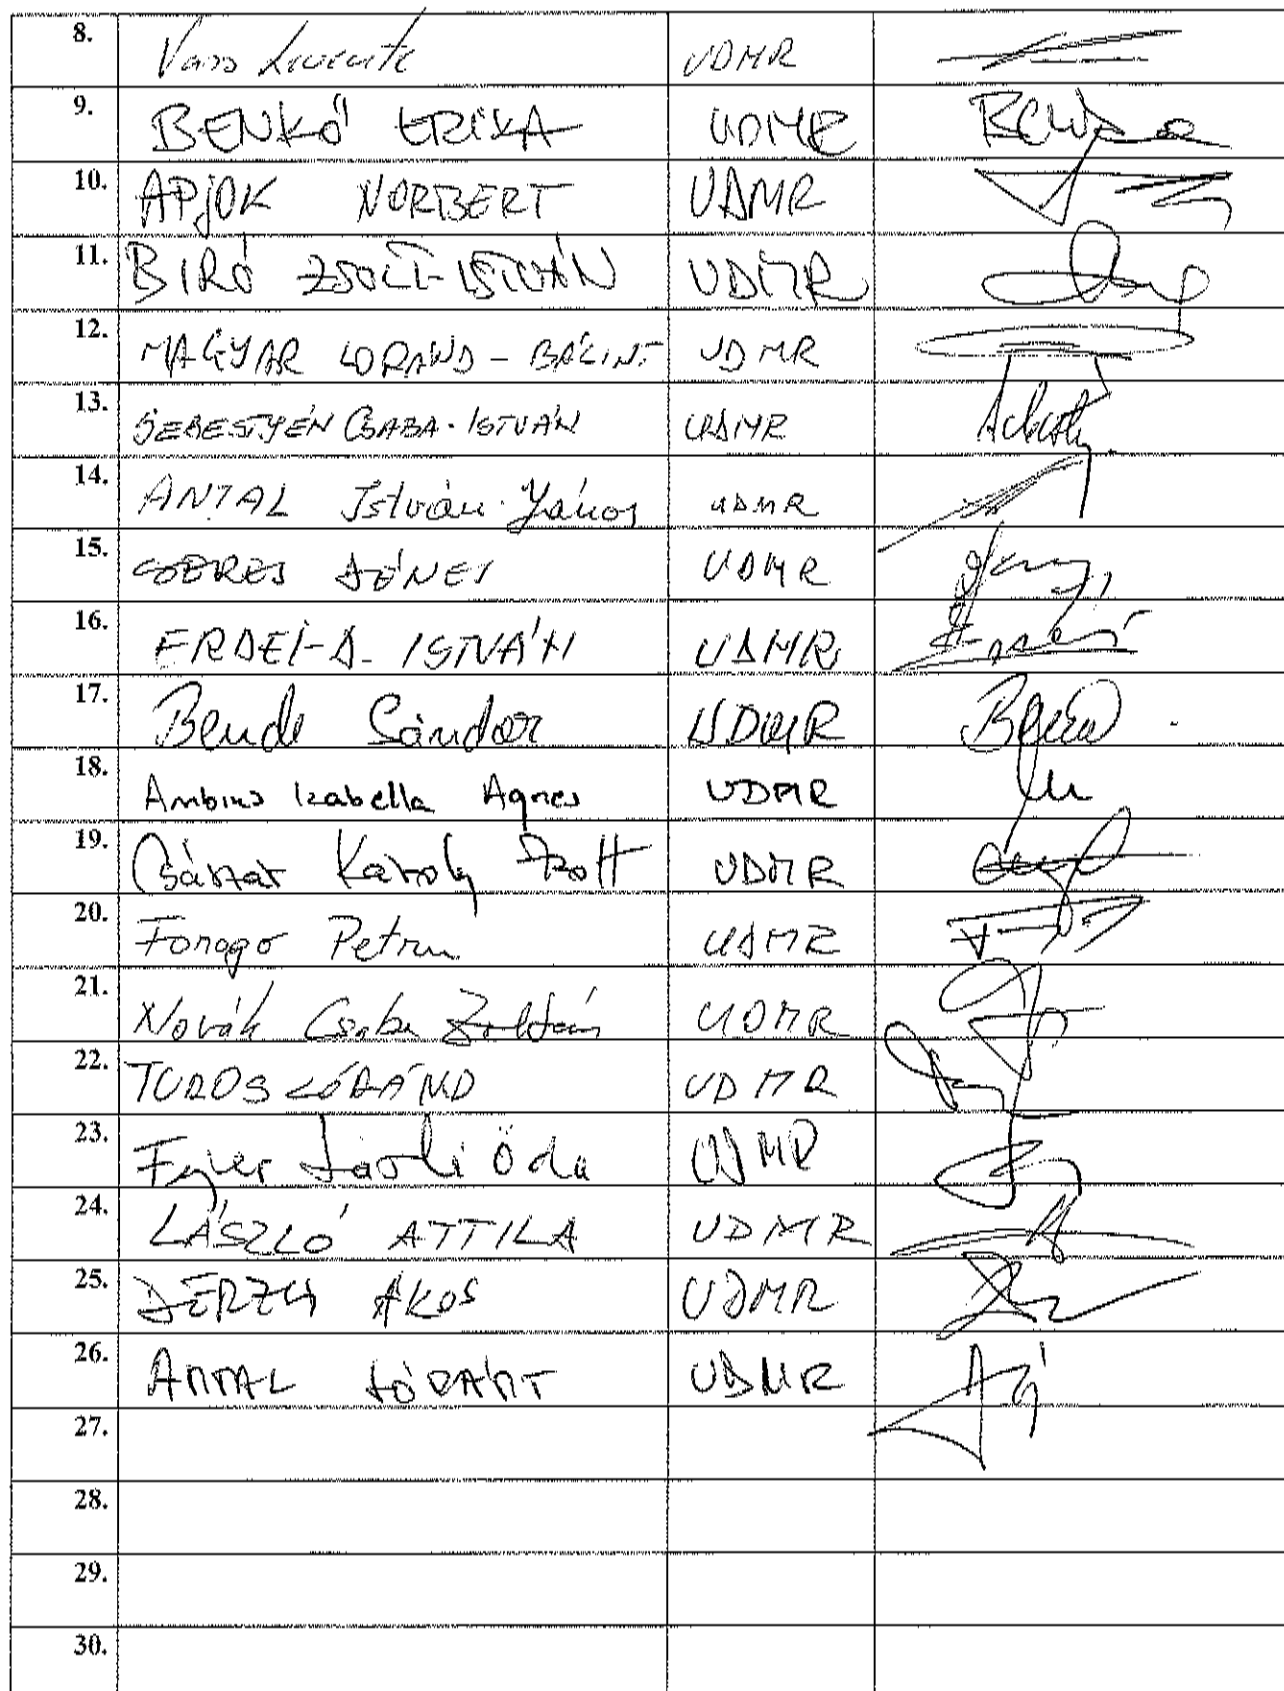 8. Vass Levente UDMR
9. BENKŐ ERIKA UDMR
10. APJOK NORBERT UDMR
11. BIRÓ ZSOLT-ISTVÁN UDMR
12. MAGYAR LORAND-BÁLINT UDMR
13. SEBESTYÉN CSABA-ISTVÁN UDMR
14. ANTAL István-János UDMR
15. SERES DÉNES UDMR
16. ERDEI-D. ISTVÁN UDMR
17. Bende Sándor UDMR
18. Ambrus Izabella Agnes UDMR
19. Császár Károly Zsolt UDMR
20. Forago Petru UDMR
21. Novák Csaba Zoltán UDMR
22. TUROS LÓRÁND UDMR
23. László Ödön UDMR
24. LÁSZLÓ ATTILA UDMR
25. DERZSI ÁKOS UDMR
26. ANTAL LÓRÁNT UDMR
27.
28.
29.
30.